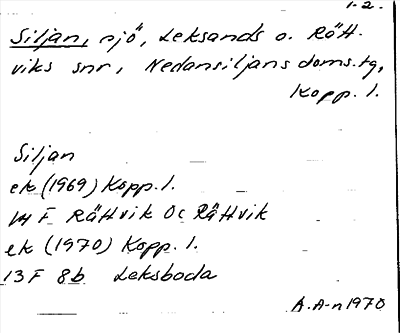 1-2.
Siljan, sjö, Leksands o. Rätt-
viks snr, Nedansiljans doms.tg,
Kopp. l.
Siljan
ek (1969) Kopp. l.
14 F Rättvik 0c Rättvik
ek (1970) Kopp. l.
13 F 8b Leksboda
A. A-n 1970